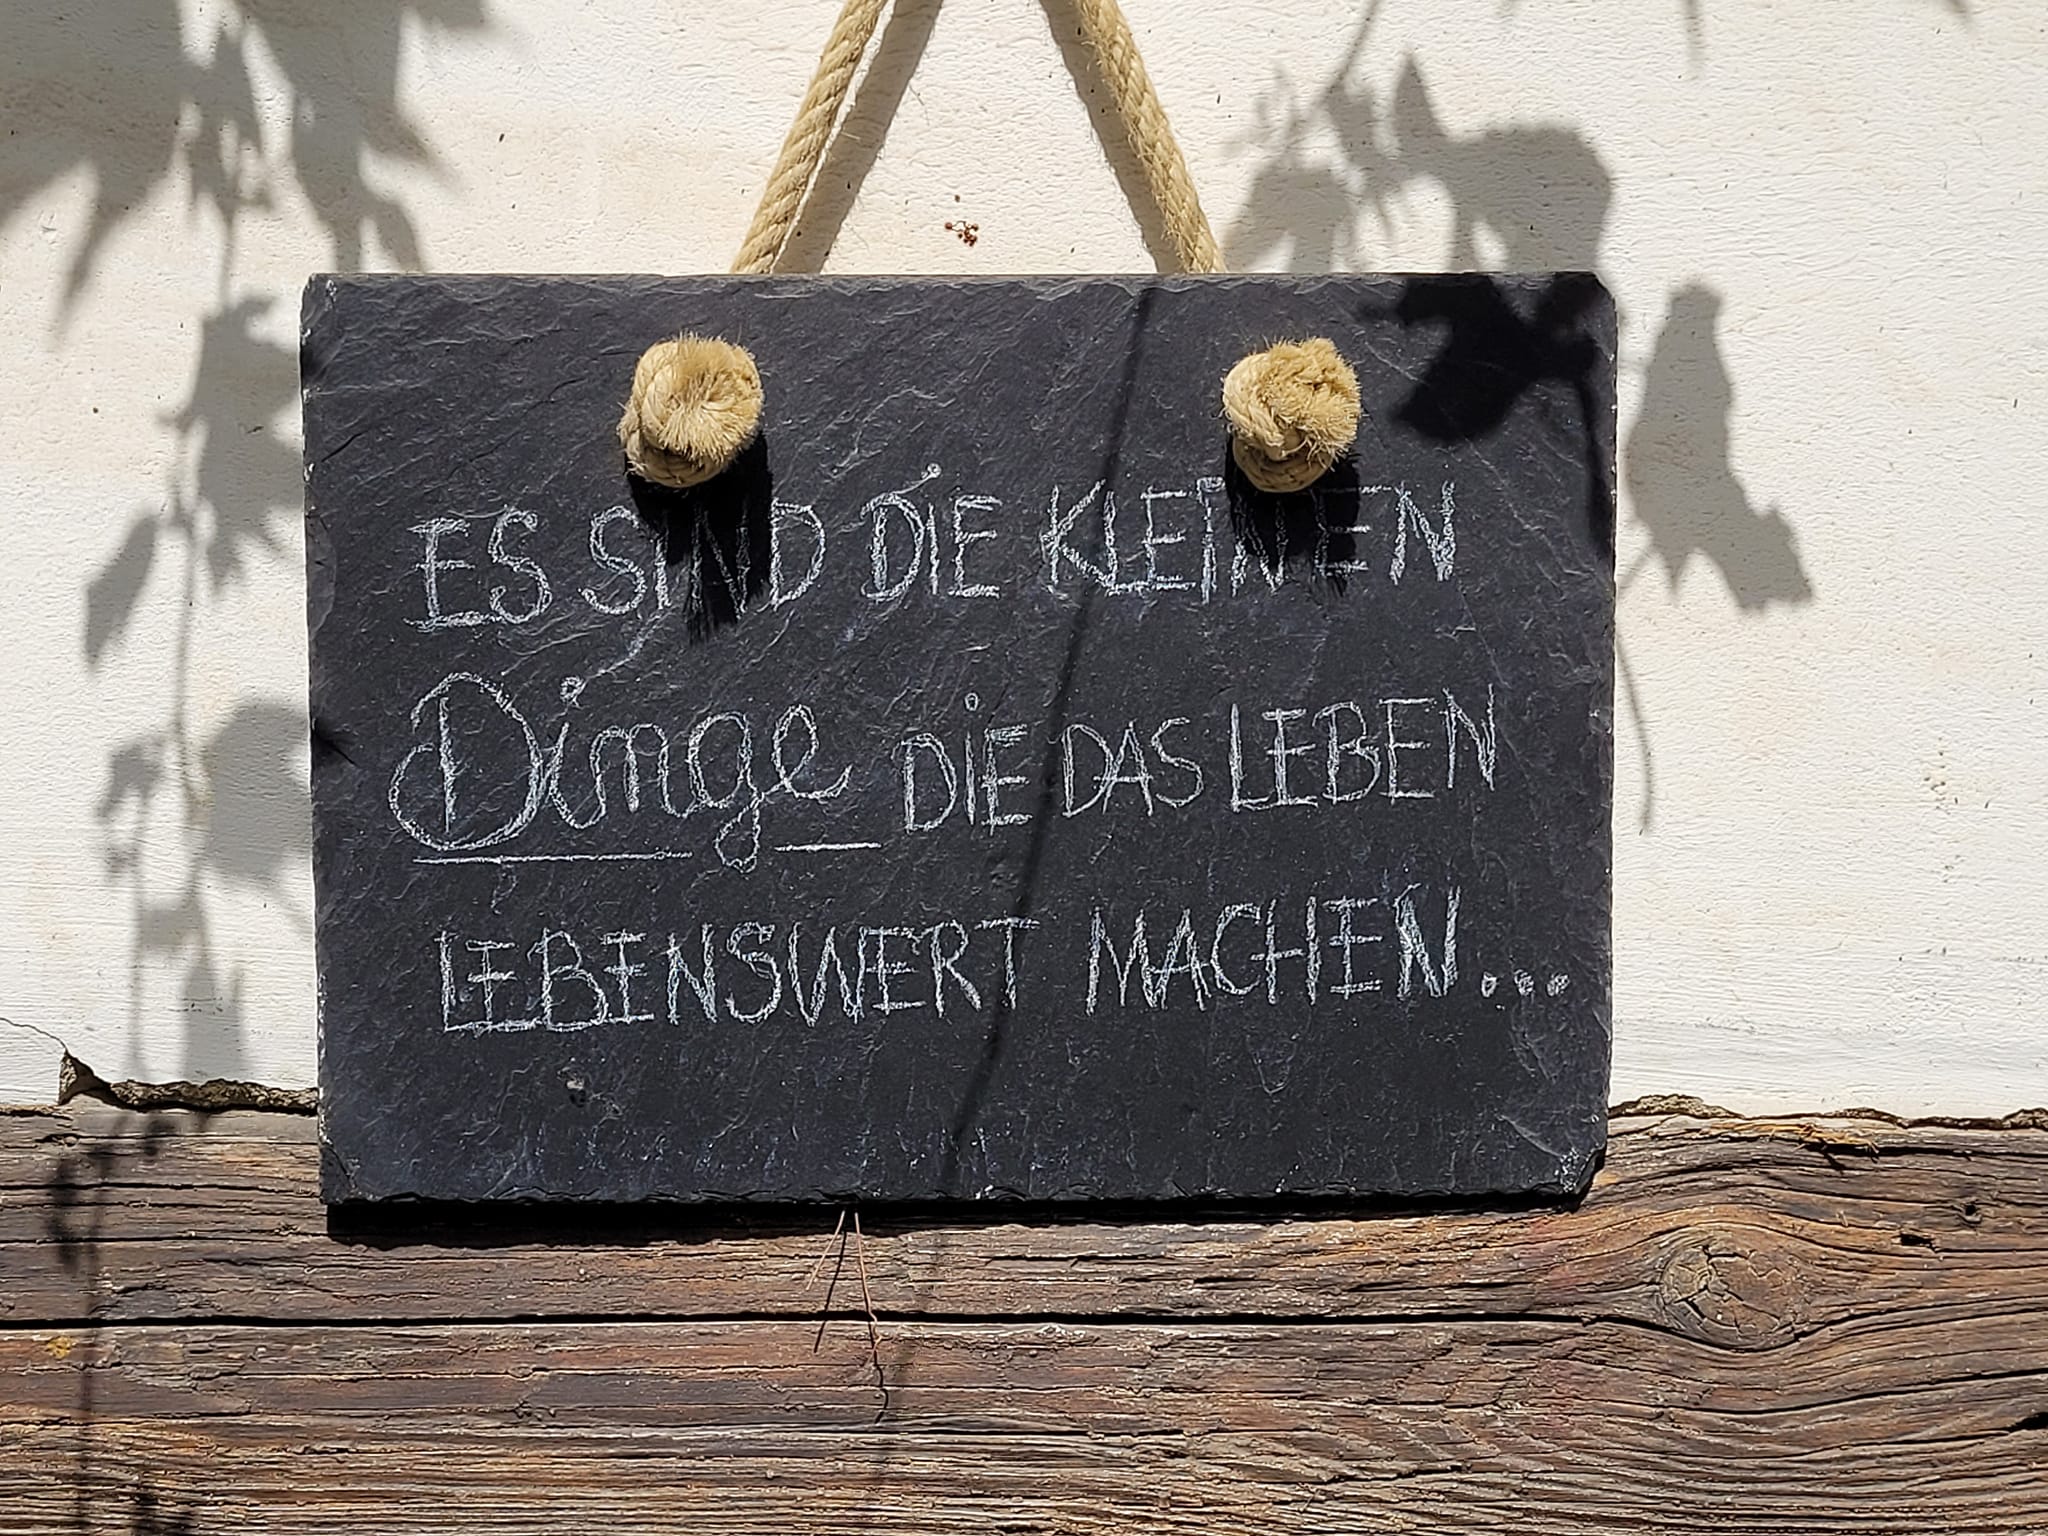 ES SIND DIE KLEINEN
Dinge DIE DAS LEBEN
LEBENSWERT MACHEN...